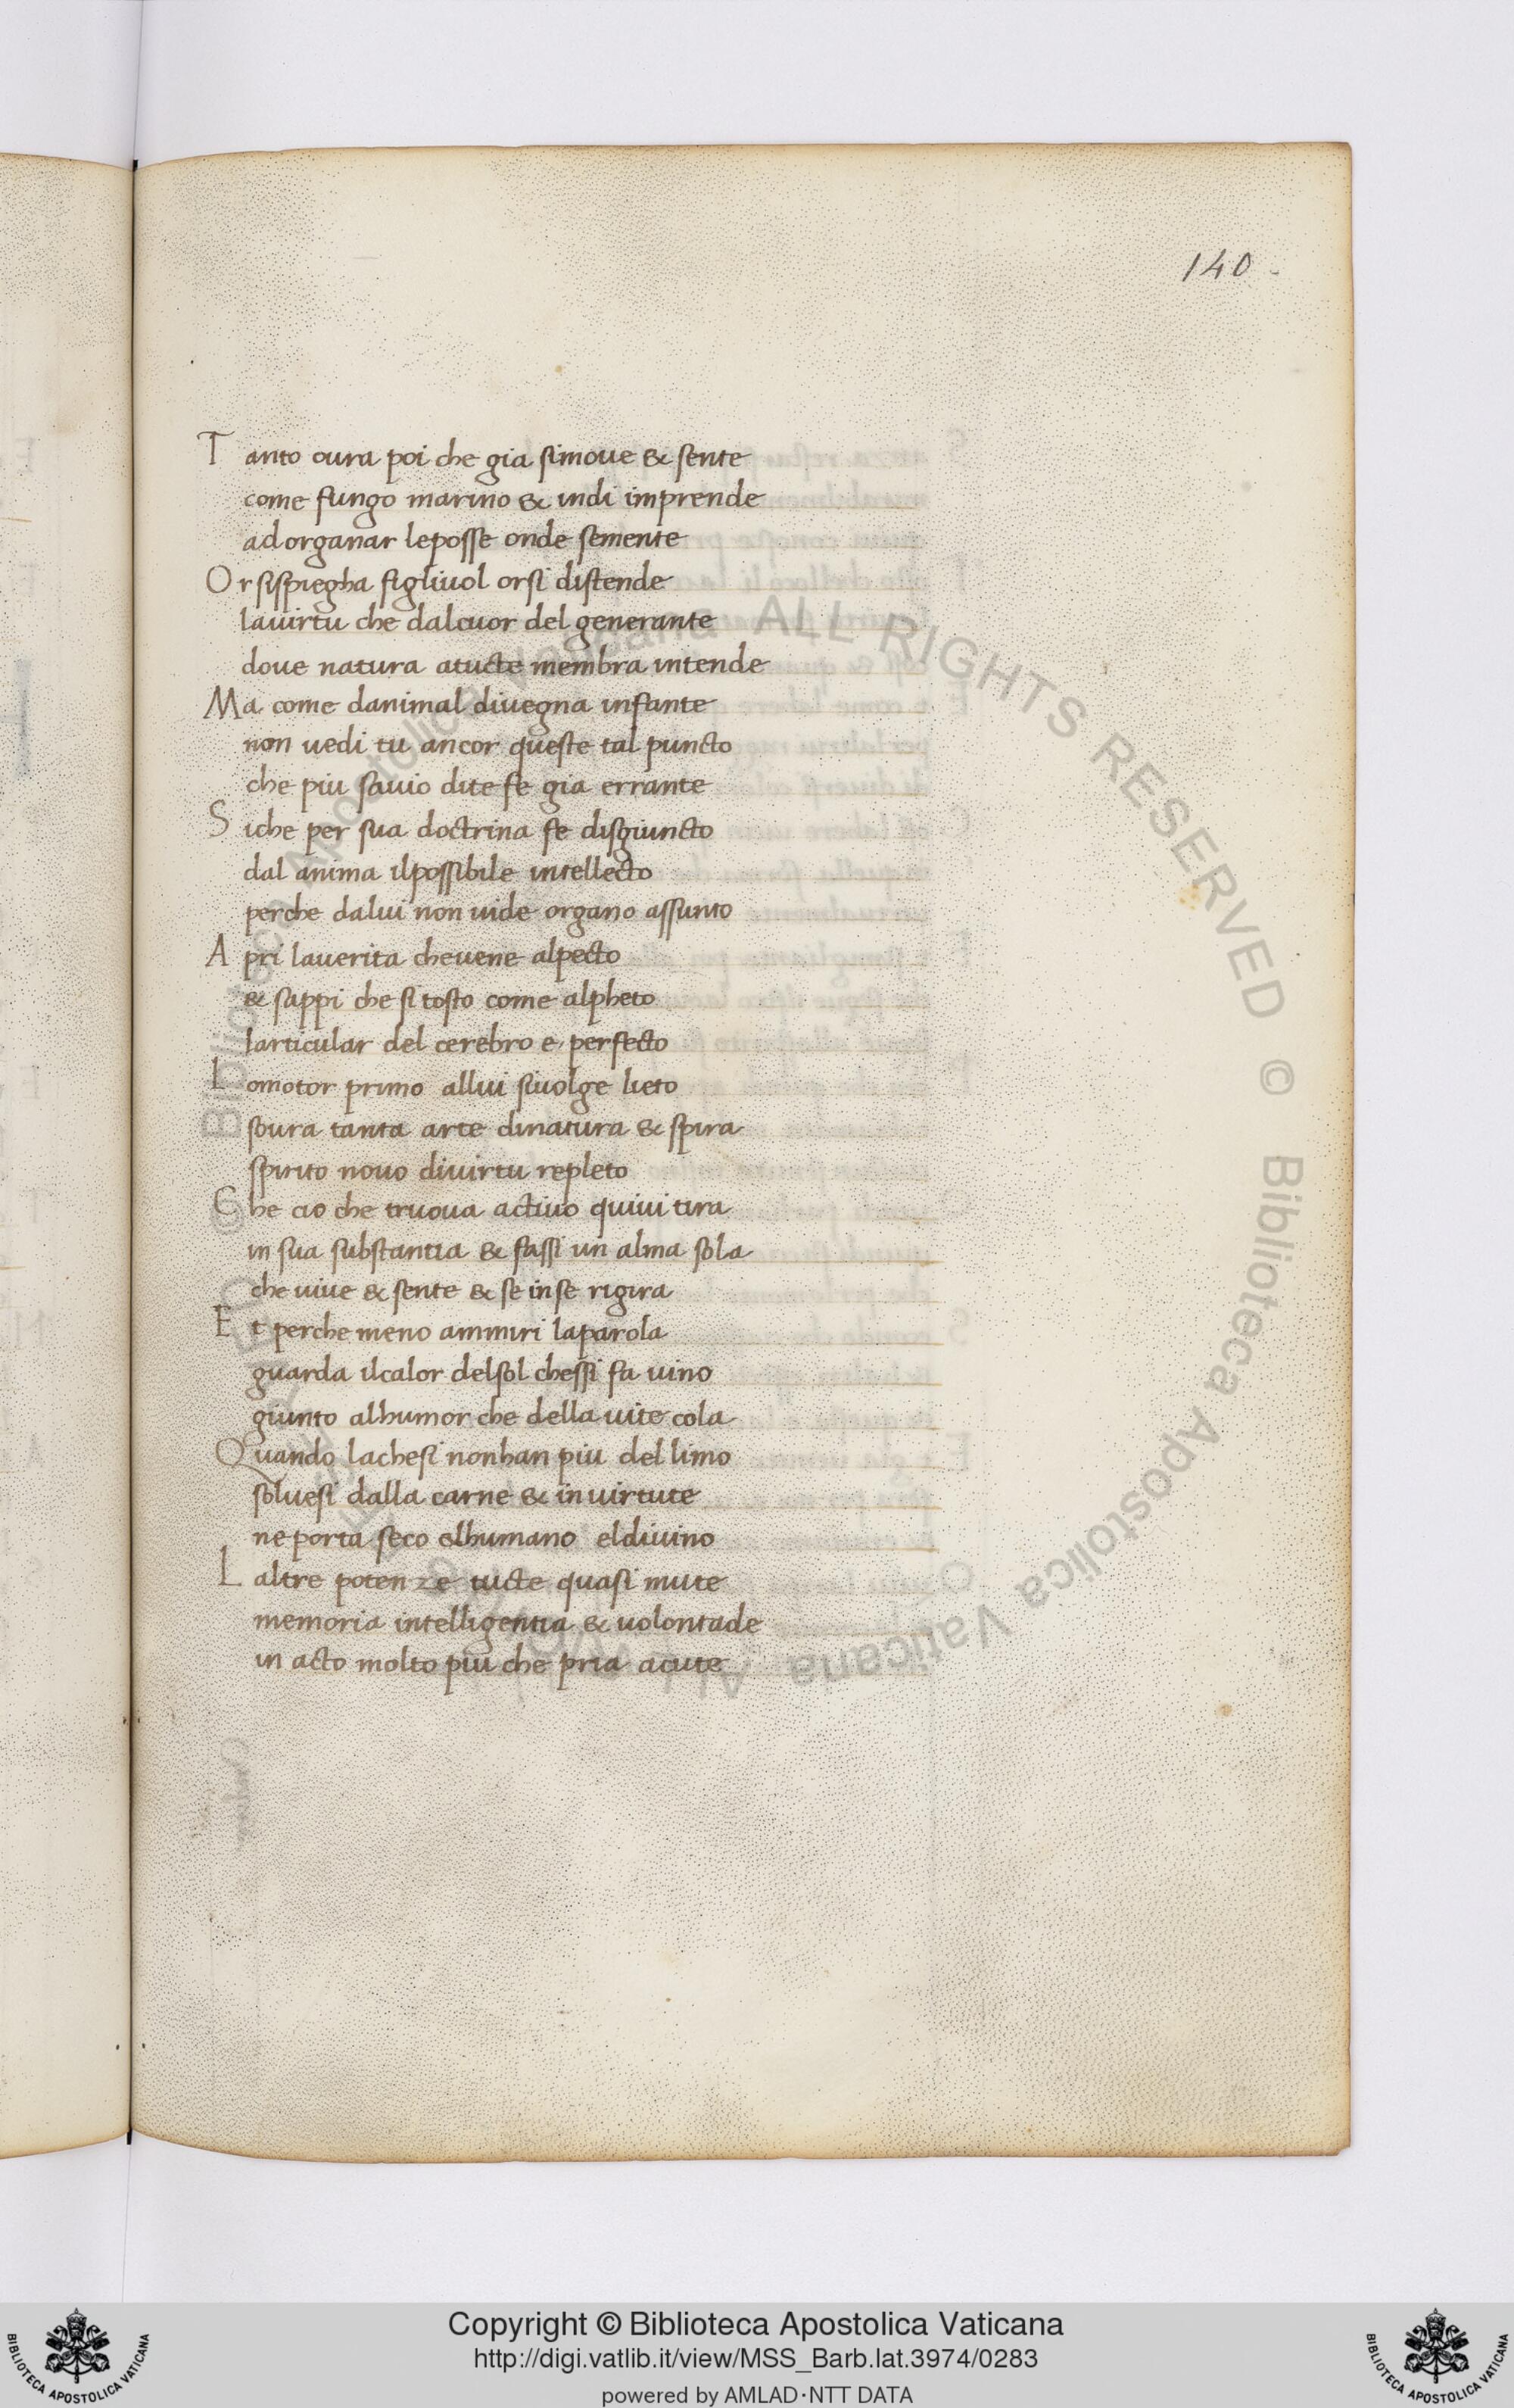 140
Tanto oura poi che gia simoue & sente
come fungo marino & indi imprende
ad organar leposse onde semente
Or sispiegha figliuol orsi distende
lauirtu che dalcuor del generante
doue natura atucte membra intende
Ma come danimal diuegna infante
non uedi tu ancor queste tal puncto
che piu sauio dite fe gia errante
Siche per sua doctrina fe disgiuncto
dal anima ilpossibile intellecto
perche dalui non uide organo assunto
Apri lauerita cheuene alpecto
& sappi che si tosto come alpheto
larticular del cerebro e perfecto
Lomotor primo allui siuolge lieto
soura tanta arte dinatura & spira
spirito nouo diuirtu repleto
Che cio che truoua actiuo quiui tira
in sua substantia & fassi un alma sola
che uiue & sente & se inse rigira
Et perche meno ammiri laparola
guarda ilcalor delsol chessi fa uino
giunto alhumor che della uite cola
Quando lachesi nonhan piu del limo
soluesi dalla carne & inuirtute
ne porta seco elhumano eldiuino
Laltre potenze tucte quasi mute
memoria intelligentia & uolontade
in acto molto piu che pria acute
Biblioteca Apostolica Vaticana ALL RIGHTS RESERVED © Biblioteca Apostolica Vaticana
Copyright © Biblioteca Apostolica Vaticana
http://digi.vatlib.it/view/MSS_Barb.lat.3974/0283
powered by AMLAD·NTT DATA
BIBLIOTECA APOSTOLICA VATICANA
BIBLIOTECA APOSTOLICA VATICANA